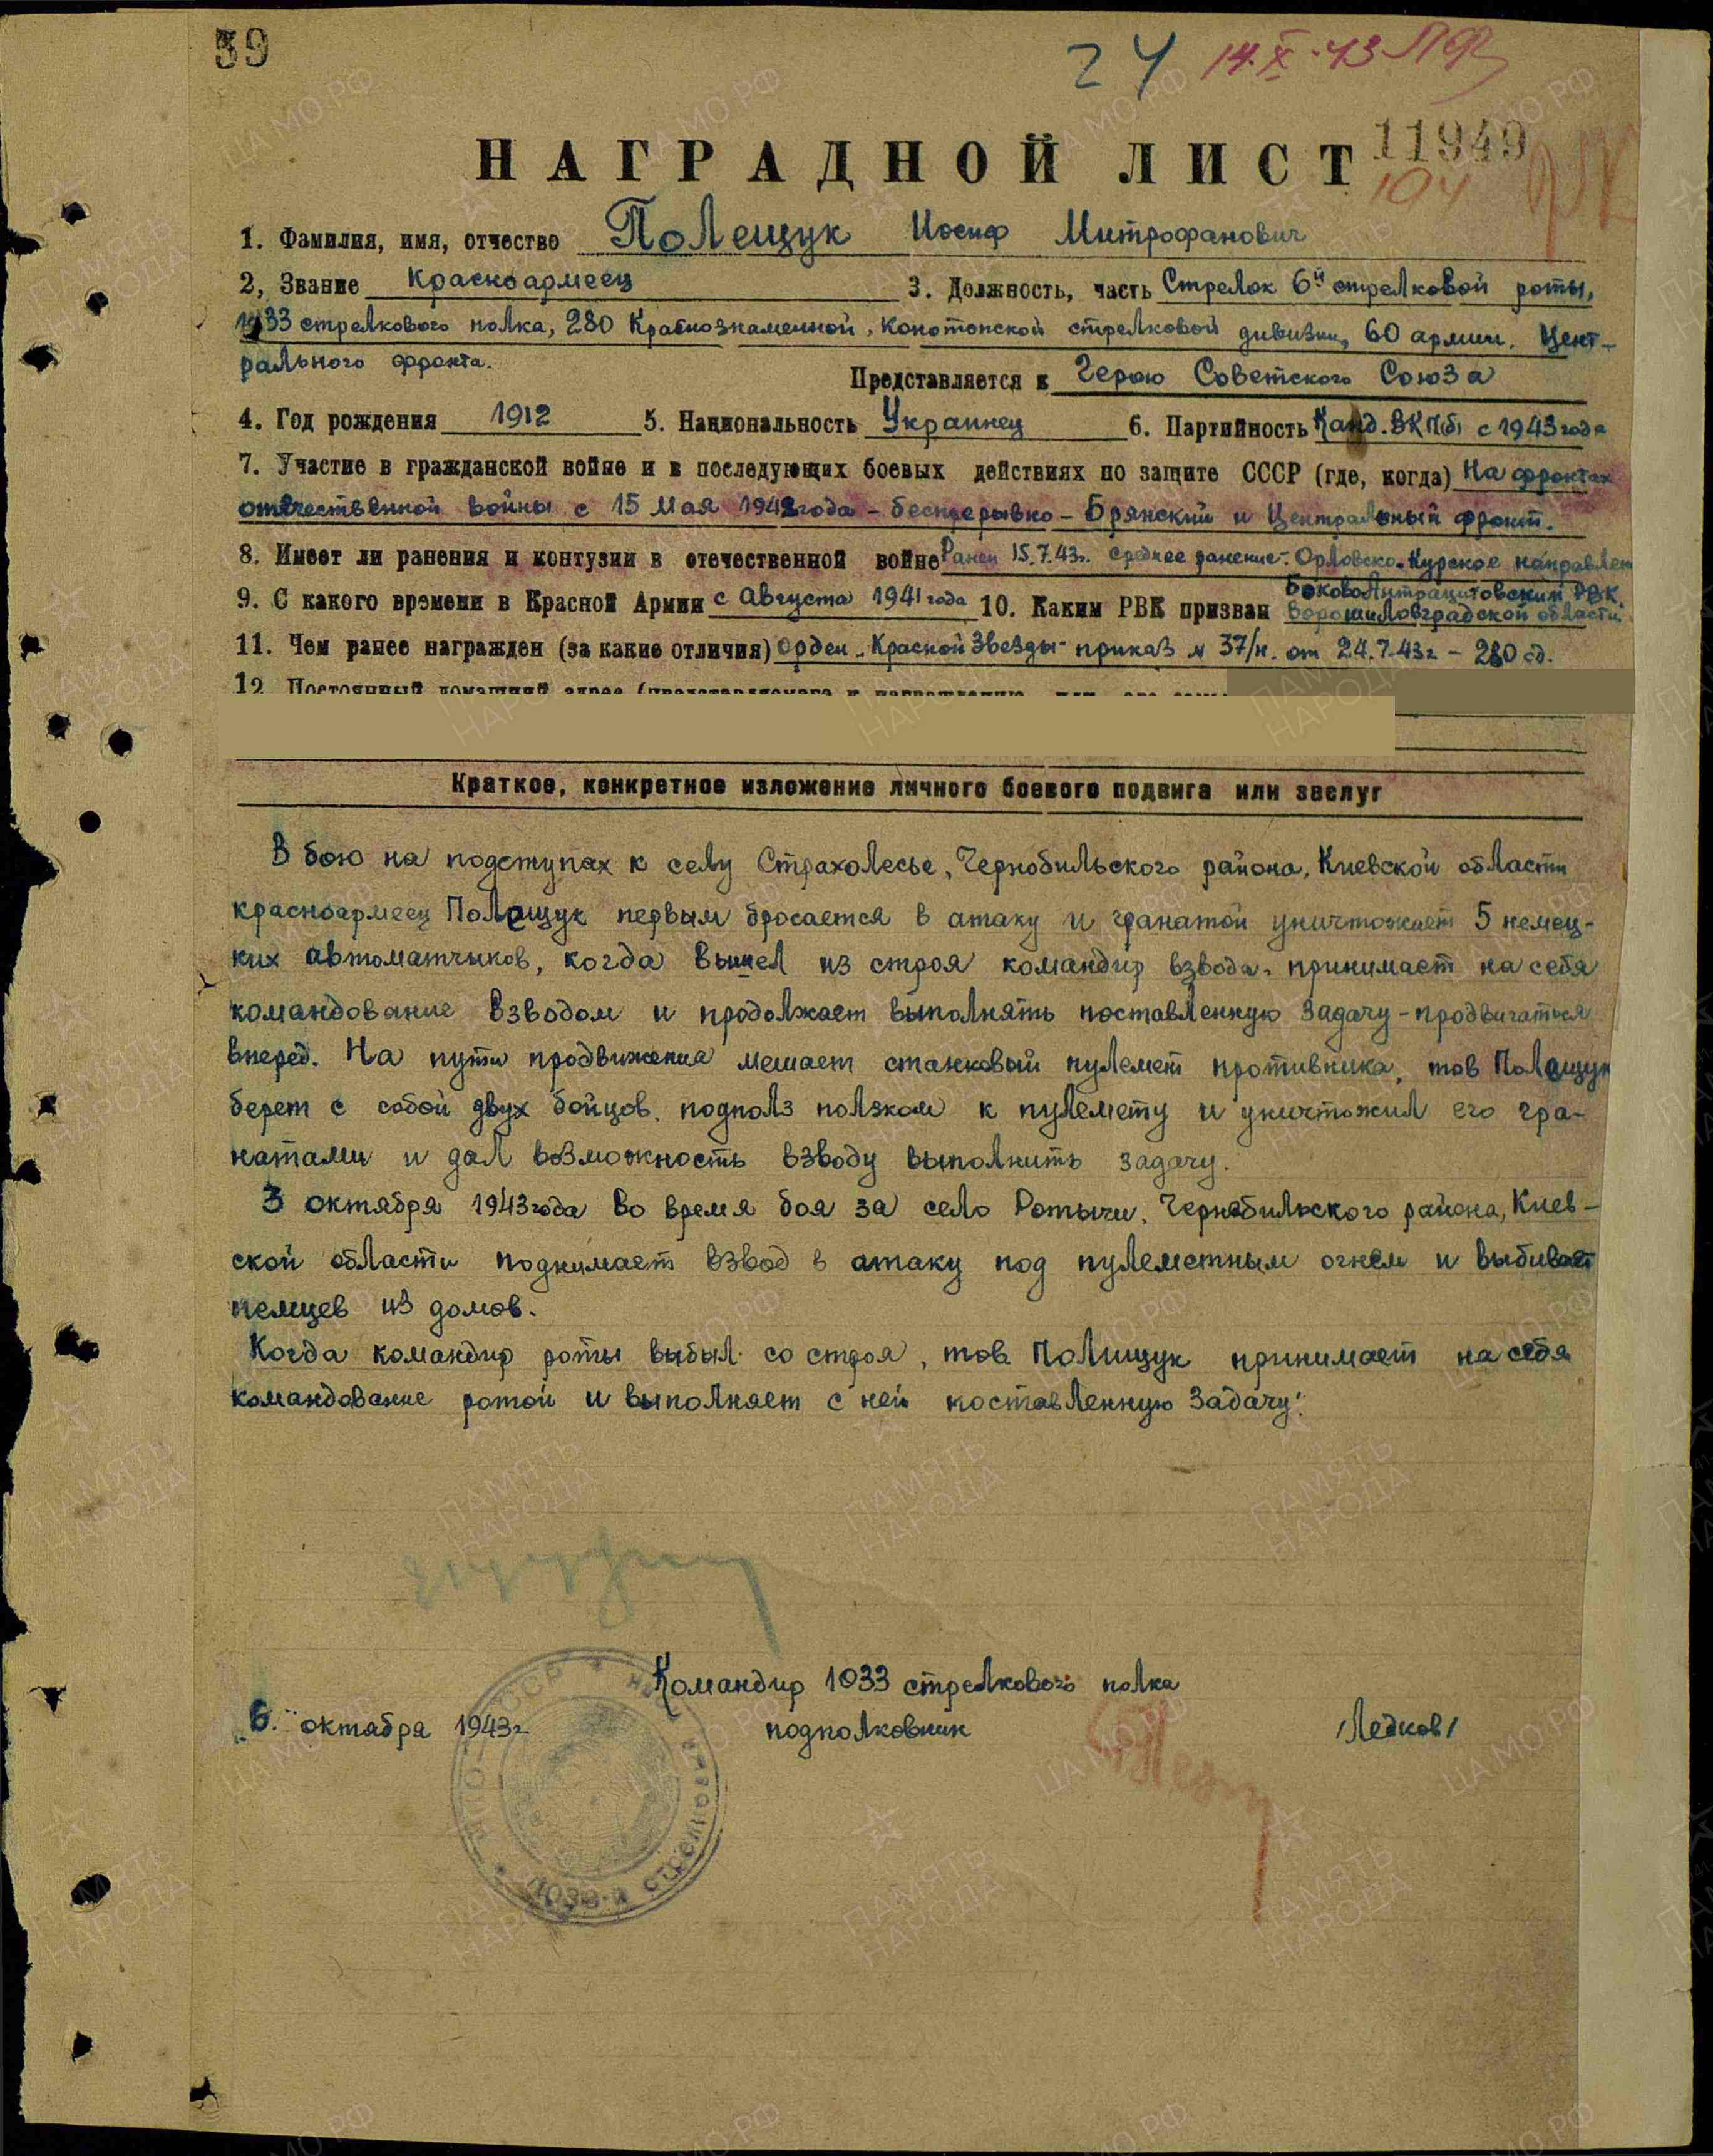 39
24 14.X.43
НАГРАДНОЙ ЛИСТ
11949
104
1. Фамилия, имя, отчество Полещук Иосиф Митрофанович
2, Звание Красноармеец 3. Должность, часть Стрелок 6й стрелковой роты,
1033 стрелкового полка, 280 Краснознаменной, Конотопской стрелковой дивизии, 60 армии. Цент-
рального фронта.
Представляется к Герою Советского Союза
4. Год рождения 1912 5. Национальность Украинец 6. Партийность Канд. ВКП(б) с 1943 года
7. Участие в гражданской войне и в последующих боевых действиях по защите СССР (где, когда) На фронтах
отечественной войны с 15 мая 1942 года – беспрерывно – Брянский и Центральный фронт.
8. Имеет ли ранения и контузии в отечественной войне Ранен 15.7.43г. среднее ранение - Орловско-Курское направлен
9. С какого времени в Красной Армии с Августа 1941 года 10. Каким РВК призван Боково Антрацитовский РВК.
Ворошиловградской области
11. Чем ранее награжден (за какие отличия) Орден „Красной Звезды" приказ № 37/н. от 24.7.43г – 280 сд.
12. Постоянный домашний адрес (представляемого к награждению или его семьи
Краткое, конкретное изложение личного боевого подвига или заслуг
В бою на подступах к селу Страхолесье, Чернобильского района, Киевской области
красноармеец Полещук первым бросается в атаку и гранатой уничтожает 5 немец-
ких автоматчыков, когда вышел из строя командир взвода, принимает на себя
командование взводом и продолжает выполнять поставленную задачу – продвигаться
вперед. На пути продвижения мешает станковый пулемет противника, тов Полещук
берет с собой двух бойцов. подполз ползком к пулемету и уничтожил его гра-
натами и дал возможность взводу выполнить задачу.
3 октября 1943 года во время боя за село Ротычи, Чернобильского района, Киев-
ской области поднимает взвод в атаку под пулеметным огнем и выбивает
немцев из домов.
Когда командир роты выбыл со строя, тов Полищук принимает на себя
командование ротой и выполняет с ней поставленную задачу.
Командир 1033 стрелкового полка
„6." октября 1943г. подполковник /Ледков/